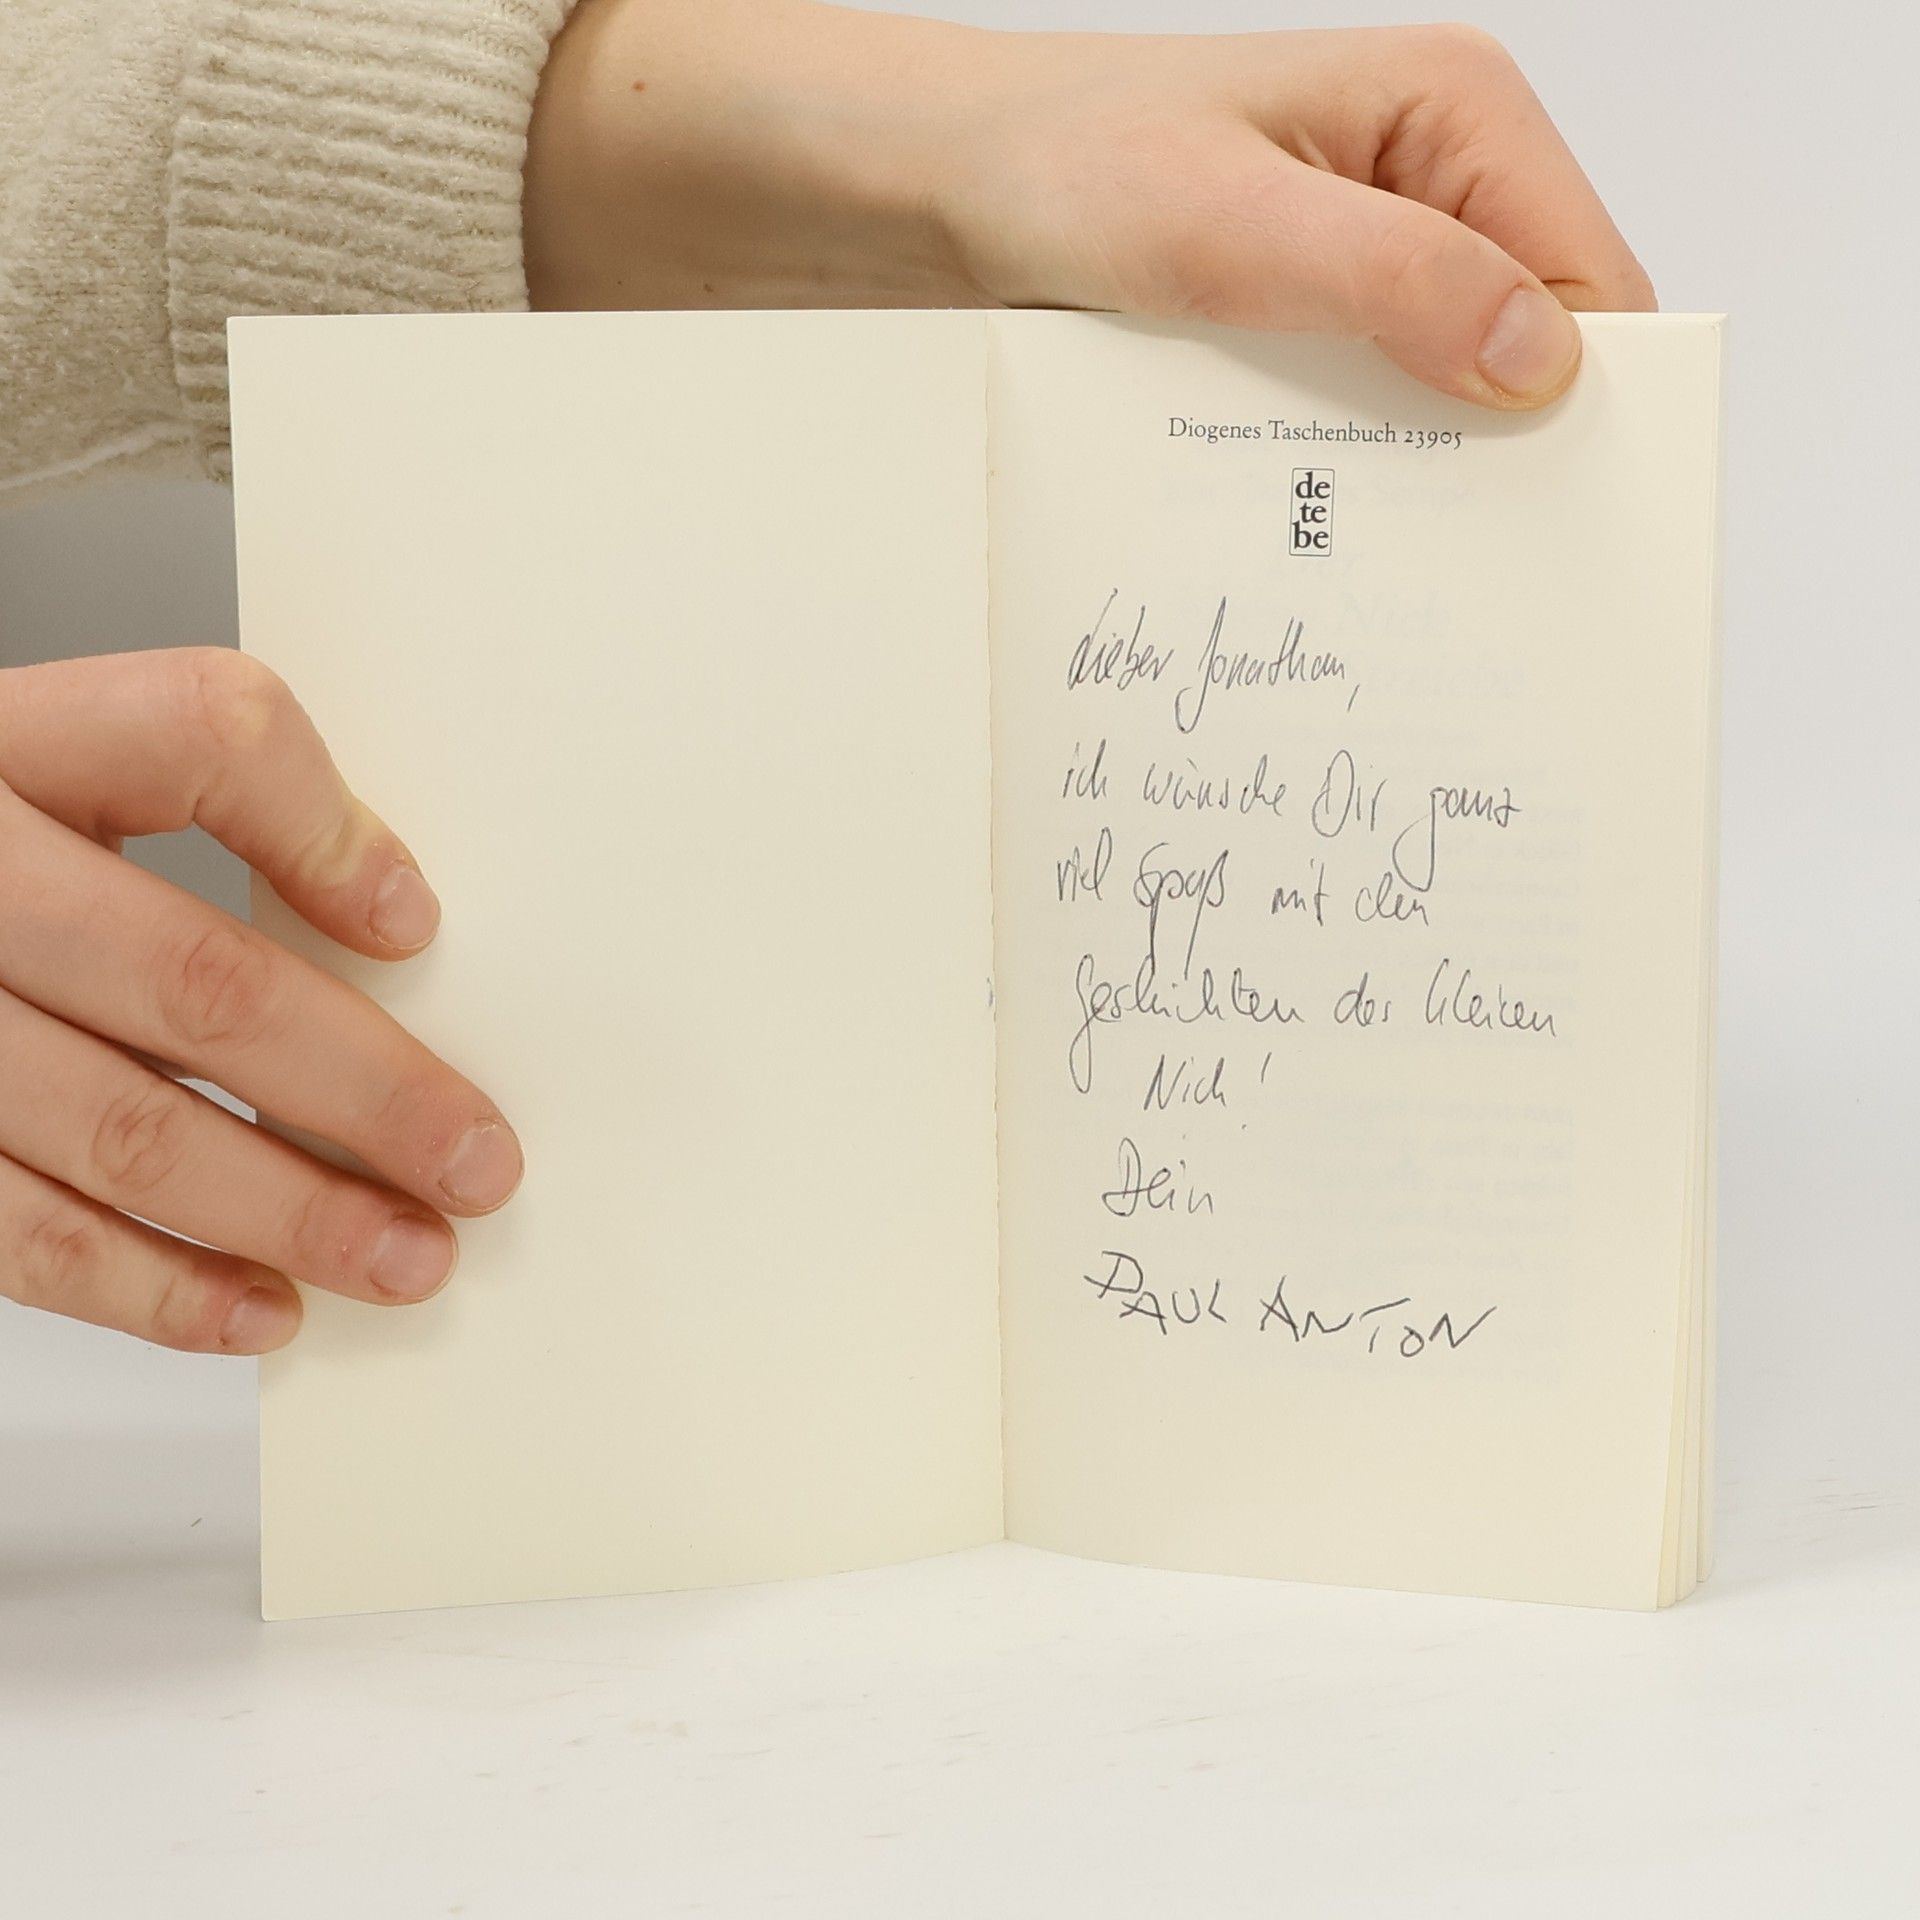 Diogenes Taschenbuch 23905
de
te
be
Lieber Jonathan,
ich wünsche Dir ganz
viel Spaß mit den
Geschichten des kleinen
Nick!
Dein
PAUL ANTON